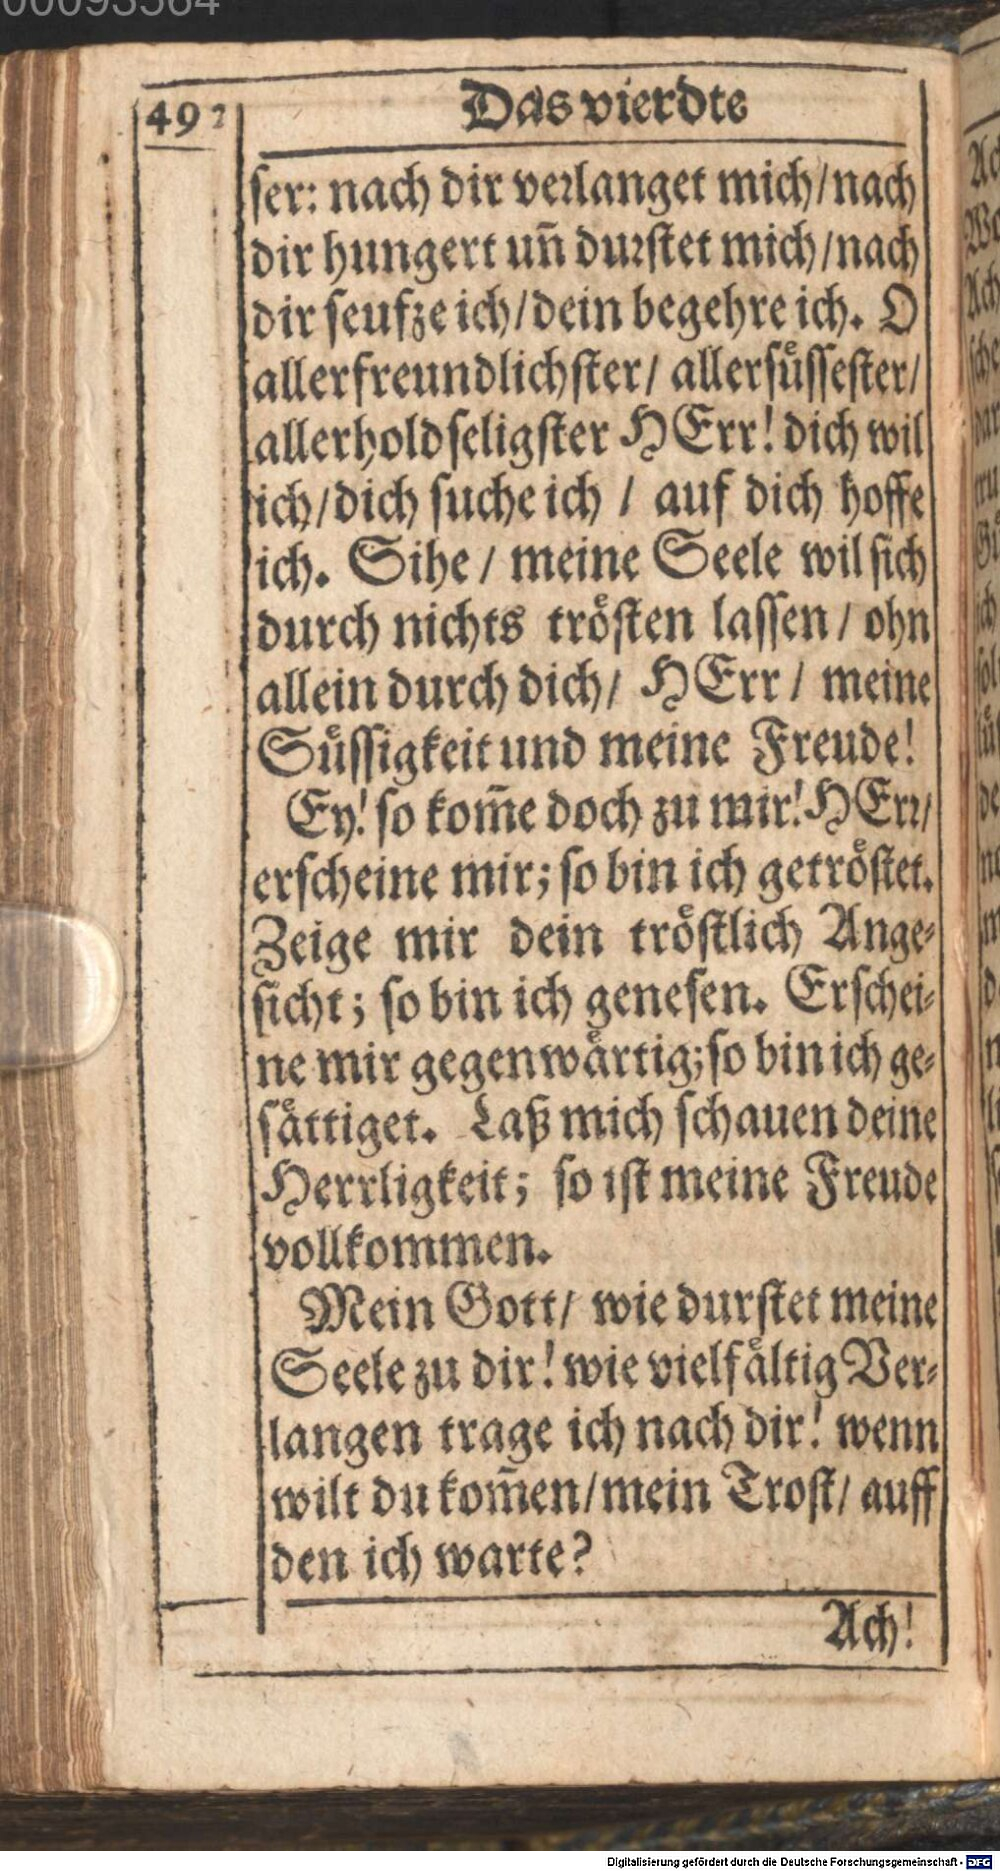 00093564
492
Das vierdte
ser: nach dir verlanget mich/nach
dir hungert uñ durstet mich/nach
dir seufze ich/dein begehre ich. O
allerfreundlichster/ allersüssester/
allerholdseligster HErr! dich wil
ich/dich suche ich / auf dich hoffe
ich. Sihe / meine Seele wil sich
durch nichts trösten lassen / ohn
allein durch dich/ HErr / meine
Süssigkeit und meine Freude!
Ey! so kom̃e doch zu mir! HErr/
erscheine mir; so bin ich getröstet.
Zeige mir dein tröstlich Ange-
sicht; so bin ich genesen. Erschei-
ne mir gegenwärtig; so bin ich ge-
sättiget. Laß mich schauen deine
Herrligkeit; so ist meine Freude
vollkommen.
Mein Gott/ wie durstet meine
Seele zu dir! wie vielfältig Ver-
langen trage ich nach dir! wenn
wilt du kom̃en/mein Trost/ auff
den ich warte?
Ach!
Digitalisierung gefördert durch die Deutsche Forschungsgemeinschaft - DFG